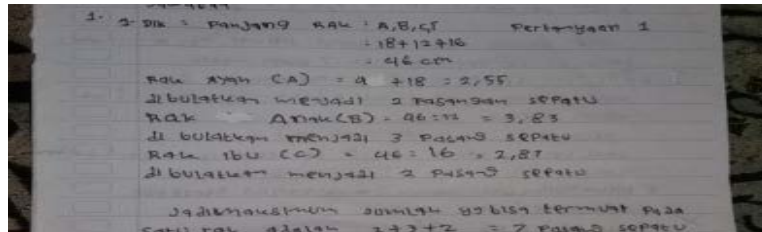 1. 2. Dik : Panjang Rak : A, B, C, Pertanyaan 1
= 18+12+16
= 46 cm
Rak Ayah (A) = 4 +18 = 2,55
dibulatkan menjadi 2 Pasangan sepatu
Rak Anak (B) = 46:12 = 3,83
di bulatkan menjadi 3 Pasang sepatu
Rak ibu (C) = 46:16 = 2,87
di bulatkan menjadi 2 Pasang sepatu
Jadi maksimum Jumlah yg bisa termuat Pada
satu rak adalah 2+3+2 = 7 Pasang sepatu